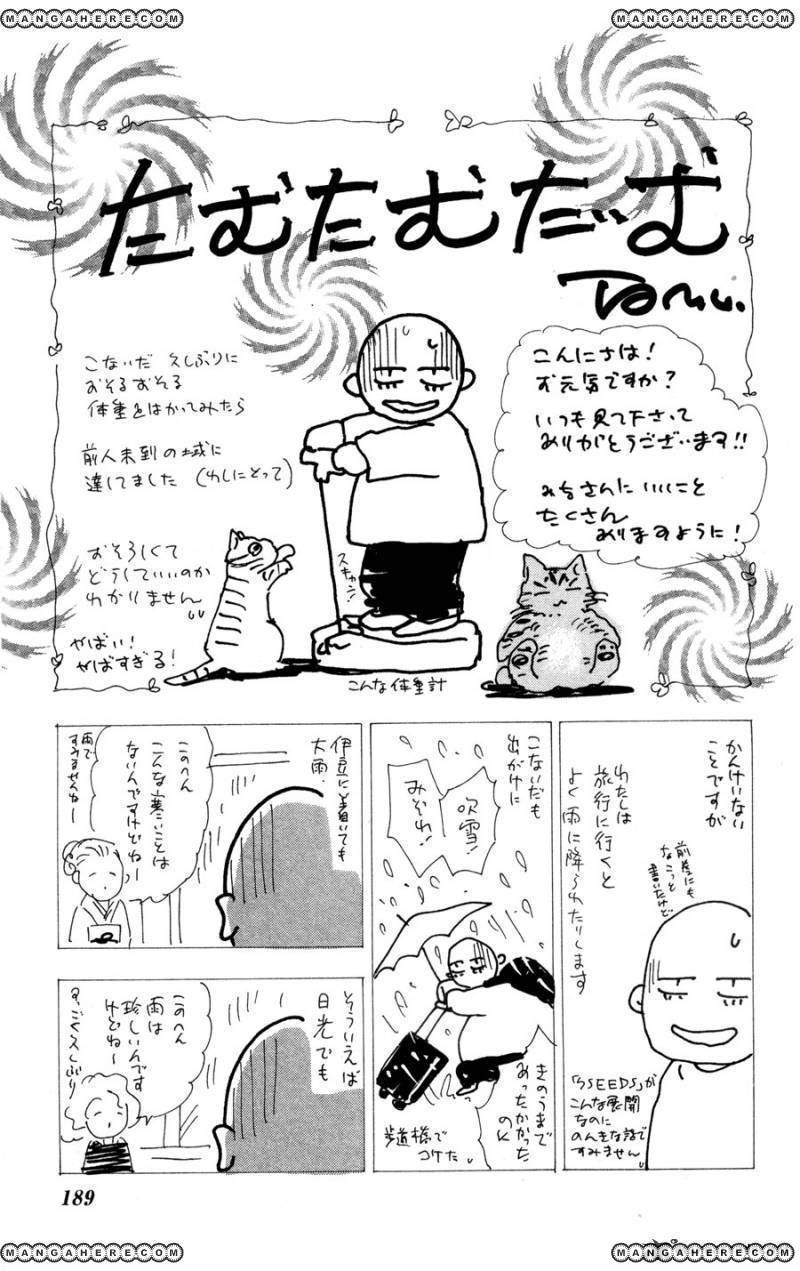 MANGAHERE.COM
MANGAHERE.COM
たむたむだーむ
Tamu.
こんにさは!
お元気ですか?
いつも見て下さって
ありがとうございます!!
みなさんに いいこと
たくさん
ありますように!
こないだ 久しぶりに
おそるおそる
体重をはかってみたら
前人未到の域に
達してました (わしにとって)
おそろしくて
どうしていいのか
わかりません
やばい!
やばすぎる!
スキャン!
こんな体重計
かんけいない
ことですが
わたしは
旅行に行くと
よく雨に降られたりします
前巻にも
なこっと
書いたけど
「7SEEDS」が
こんな展開
なのに
のんきな話で
すみません
こないだも
出がけに
吹雪!
みぞれ!
きのうまで
あったかかった
のに
歩道橋で
コケた
伊豆に着いても
大雨.
このへん
こんな寒いことは
ないんですけどねー
雨で
すみませんねー
そういえば
日光でも
このへん
雨は
珍しいんです
けどねー
すっごく久しぶり
189
MANGAHERE.COM
MANGAHERE.COM